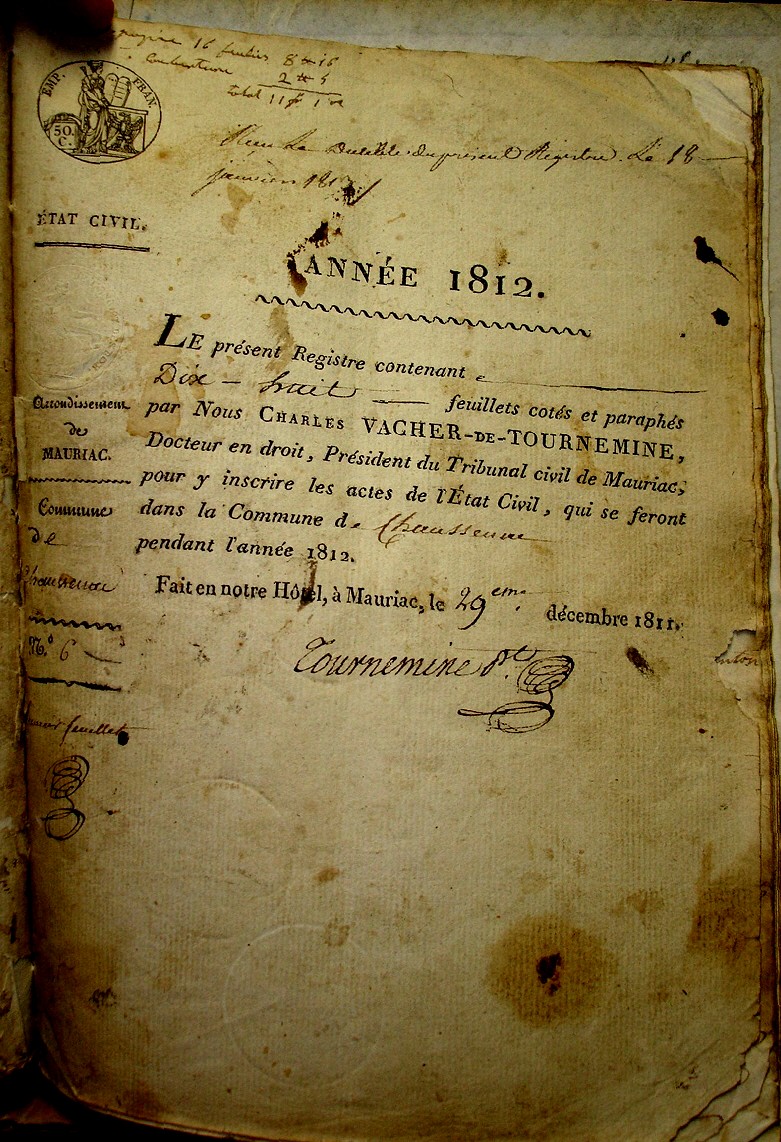 16 feuilles 8 # 16
couverture 2 # 5
total 11 # 1
EMP. FRAN.
50.
C.
Reçu le Double du présent Registre. Le 18
janvier 181
ÉTAT CIVIL.
ANNÉE 1812.
LE présent Registre contenant
Dix - huit feuillets cotés et paraphés
par Nous CHARLES VACHER-DE-TOURNEMINE,
Docteur en droit, Président du Tribunal civil de Mauriac,
pour y inscrire les actes de l'État Civil, qui se feront
dans la Commune de Chaussenac
pendant l'année 1812.
Fait en notre Hôtel, à Mauriac, le 29eme. décembre 1811.
Tournemine Pt.
Arrondissement
de
MAURIAC.
Commune
de
Chaussenac
N.º 6
feuillet